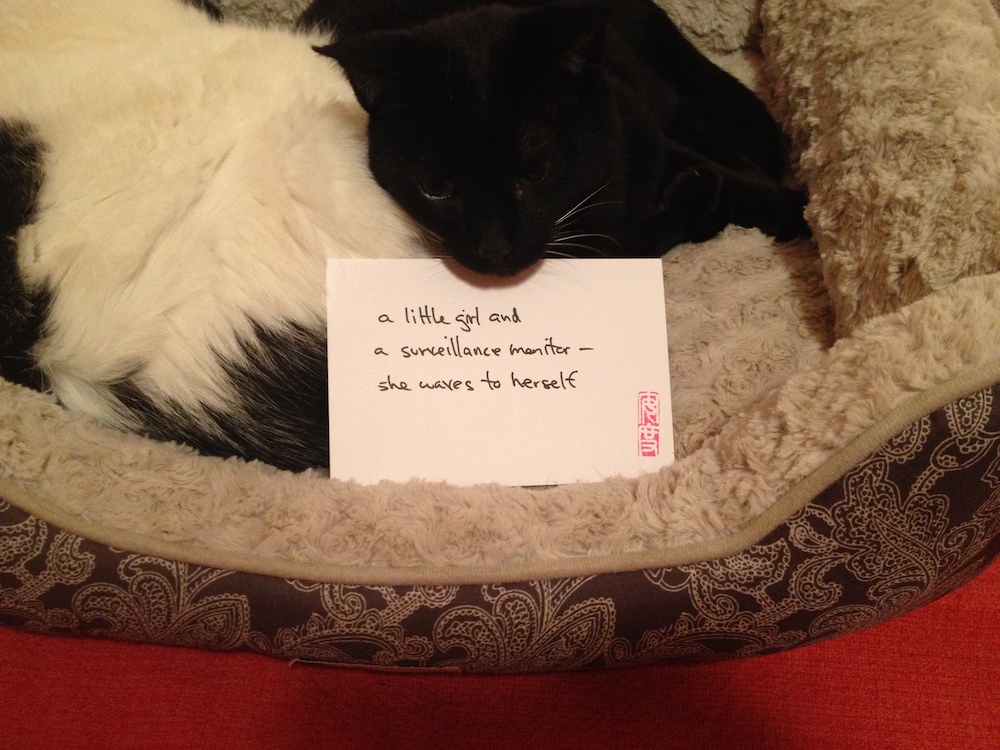 a little girl and
a surveillance monitor –
she waves to herself